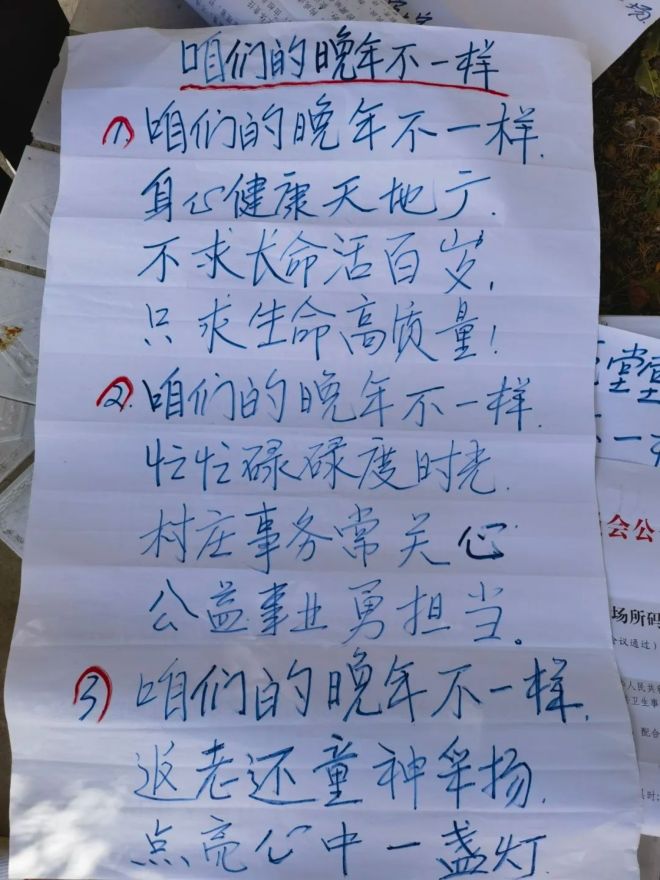 咱们的晚年不一样
1. 咱们的晚年不一样.
身心健康天地广.
不求长命活百岁,
只求生命高质量!
2. 咱们的晚年不一样.
忙忙碌碌度时光.
村庄事务常关心
公益事业勇担当。
3) 咱们的晚年不一样.
返老还童神采扬.
点亮心中一盏灯
堂堂
会公
场所码
会议通过)
人民共
卫生事
配合